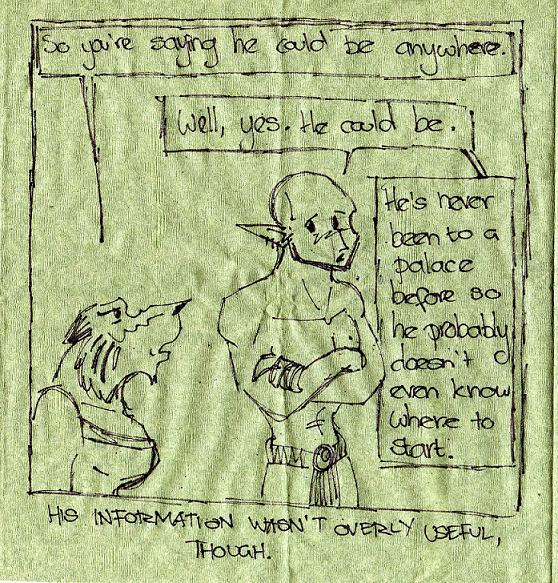 So you're saying he could be anywhere.
Well, yes. He could be.
He's never
been to a
palace
before so
he probably
doesn't
even know
where to
start.
HIS INFORMATION WASN'T OVERLY USEFUL,
THOUGH.